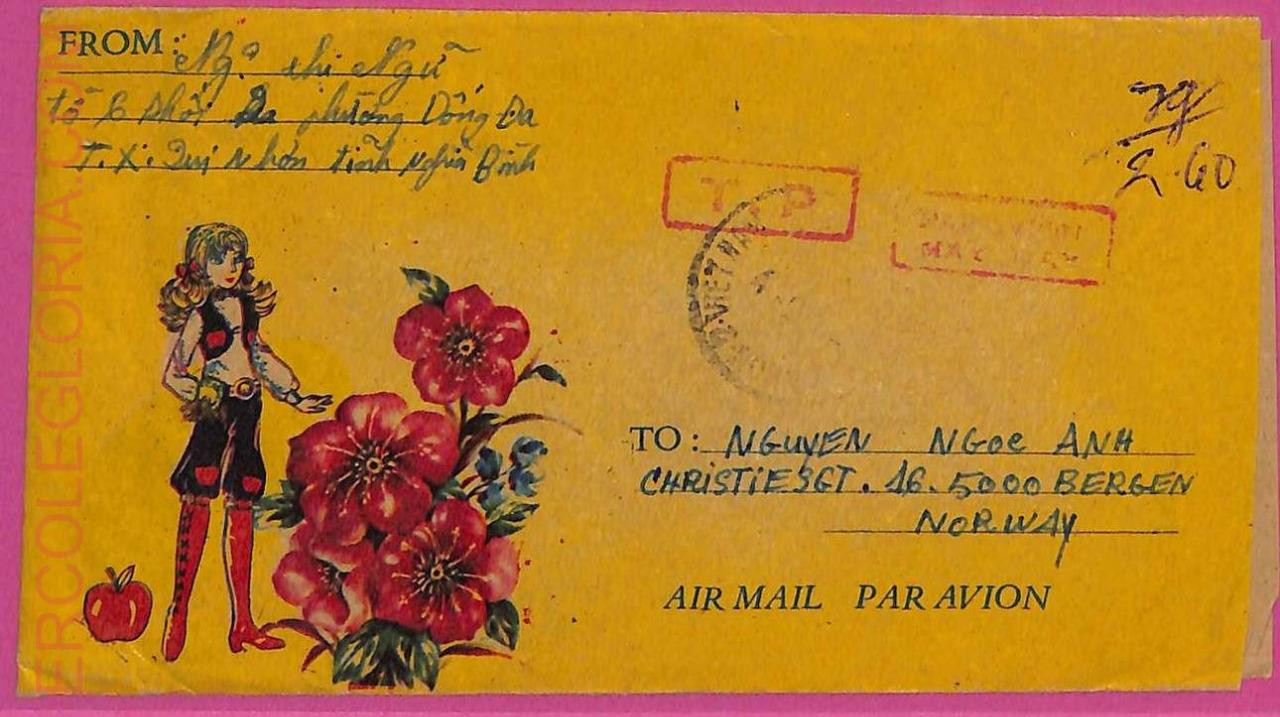 FROM: Ng. thị Ngữ
tổ 6 khối phường Đống Đa
T. X. Qui Nhơn tỉnh Nghĩa Bình
7g
2.60
T P
MAY BAY
VIETNAM
TO: NGUYEN NGOC ANH
CHRISTIESGT. 16. 5000 BERGEN
NORWAY
AIR MAIL PAR AVION
ERCOLEGLORIA.COM